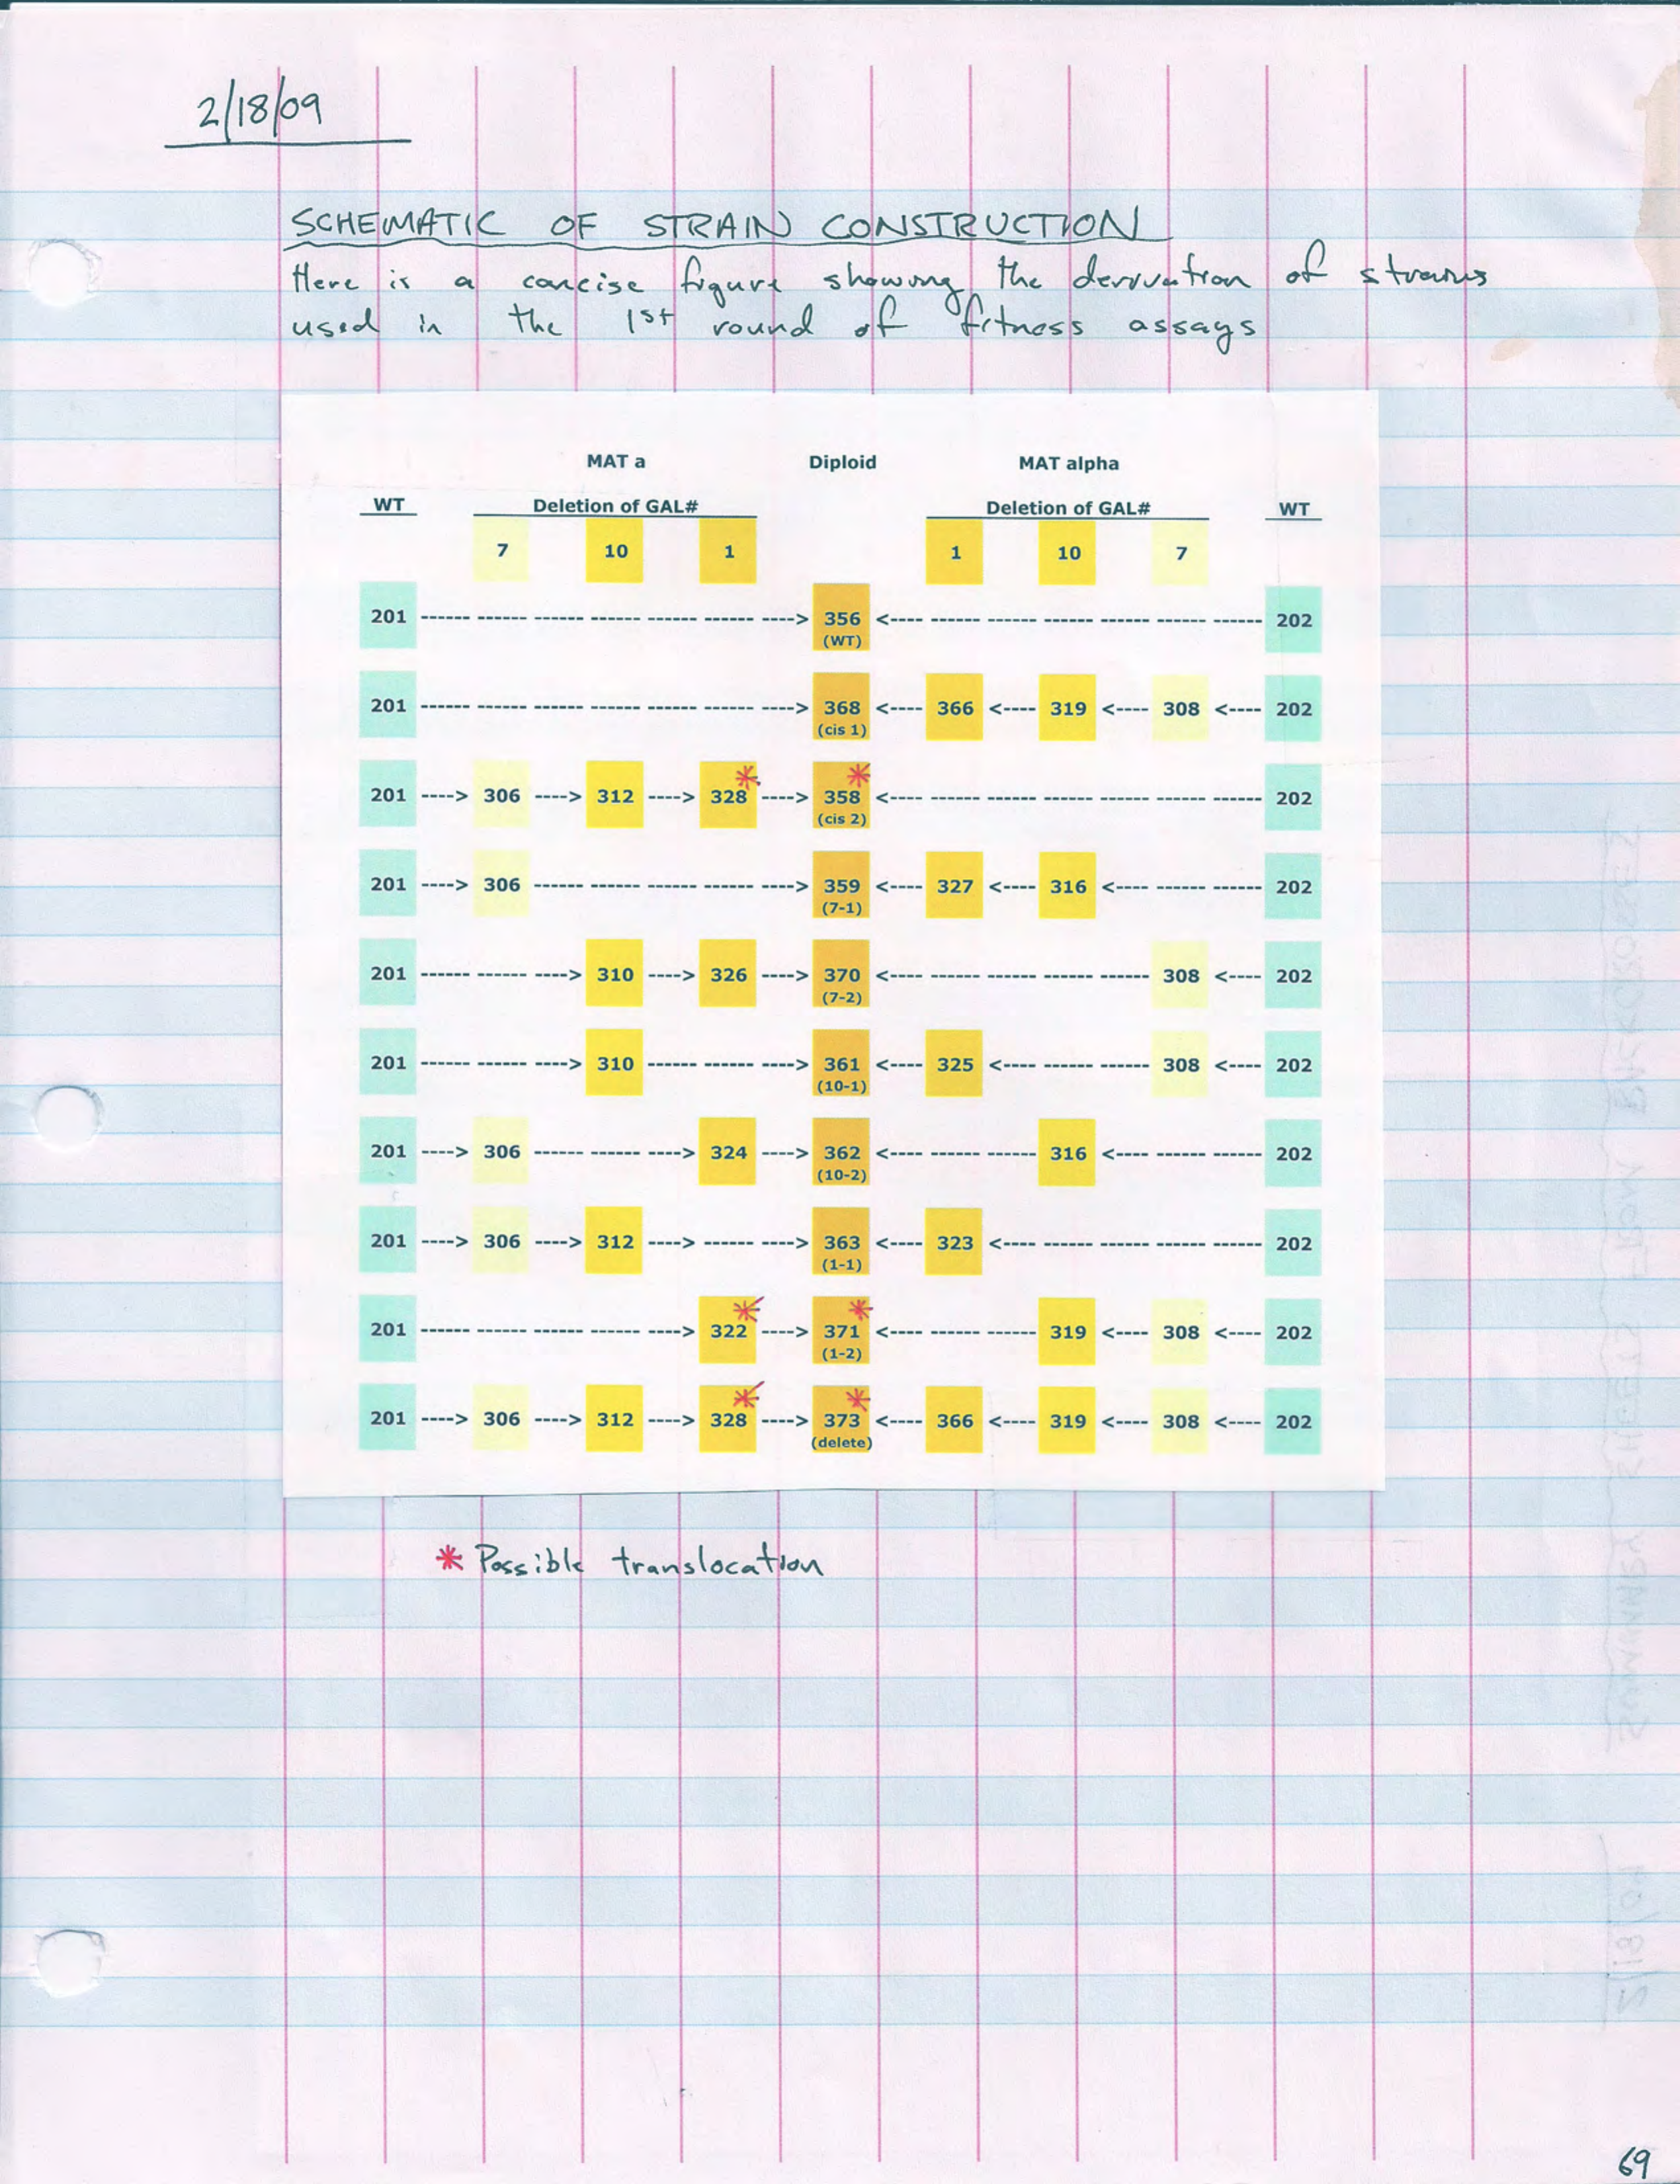 2/18/09
SCHEMATIC OF STRAIN CONSTRUCTION
Here is a concise figure showing the derivation of strains
used in the 1st round of fitness assays
MAT a Diploid MAT alpha
WT Deletion of GAL# Deletion of GAL# WT
7 10 1 1 10 7
201 ------ ------ ------ ------ ------ ------ ----> 356 <---- ------ ------ ------ ------ ------ ------ 202
(WT)
201 ------ ------ ------ ------ ------ ------ ----> 368 <---- 366 <---- 319 <---- 308 <---- 202
(cis 1)
201 ----> 306 ----> 312 ----> 328* ----> 358* <---- ------ ------ ------ ------ ------ ------ 202
(cis 2)
201 ----> 306 ------ ------ ------ ------ ----> 359 <---- 327 <---- 316 <---- ------ ------ 202
(7-1)
201 ------ ------ ----> 310 ----> 326 ----> 370 <---- ------ ------ ------ ------ 308 <---- 202
(7-2)
201 ------ ------ ----> 310 ------ ------ ----> 361 <---- 325 <---- ------ ------ 308 <---- 202
(10-1)
201 ----> 306 ------ ------ ----> 324 ----> 362 <---- ------ ------ 316 <---- ------ ------ 202
(10-2)
201 ----> 306 ----> 312 ----> ------ ----> 363 <---- 323 <---- ------ ------ ------ ------ 202
(1-1)
201 ------ ------ ------ ------ ----> 322* ----> 371* <---- ------ ------ 319 <---- 308 <---- 202
(1-2)
201 ----> 306 ----> 312 ----> 328* ----> 373* <---- 366 <---- 319 <---- 308 <---- 202
(delete)
* Possible translocation
69